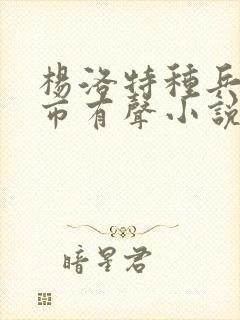 楊洛特種兵
市有聲小說
暗星君